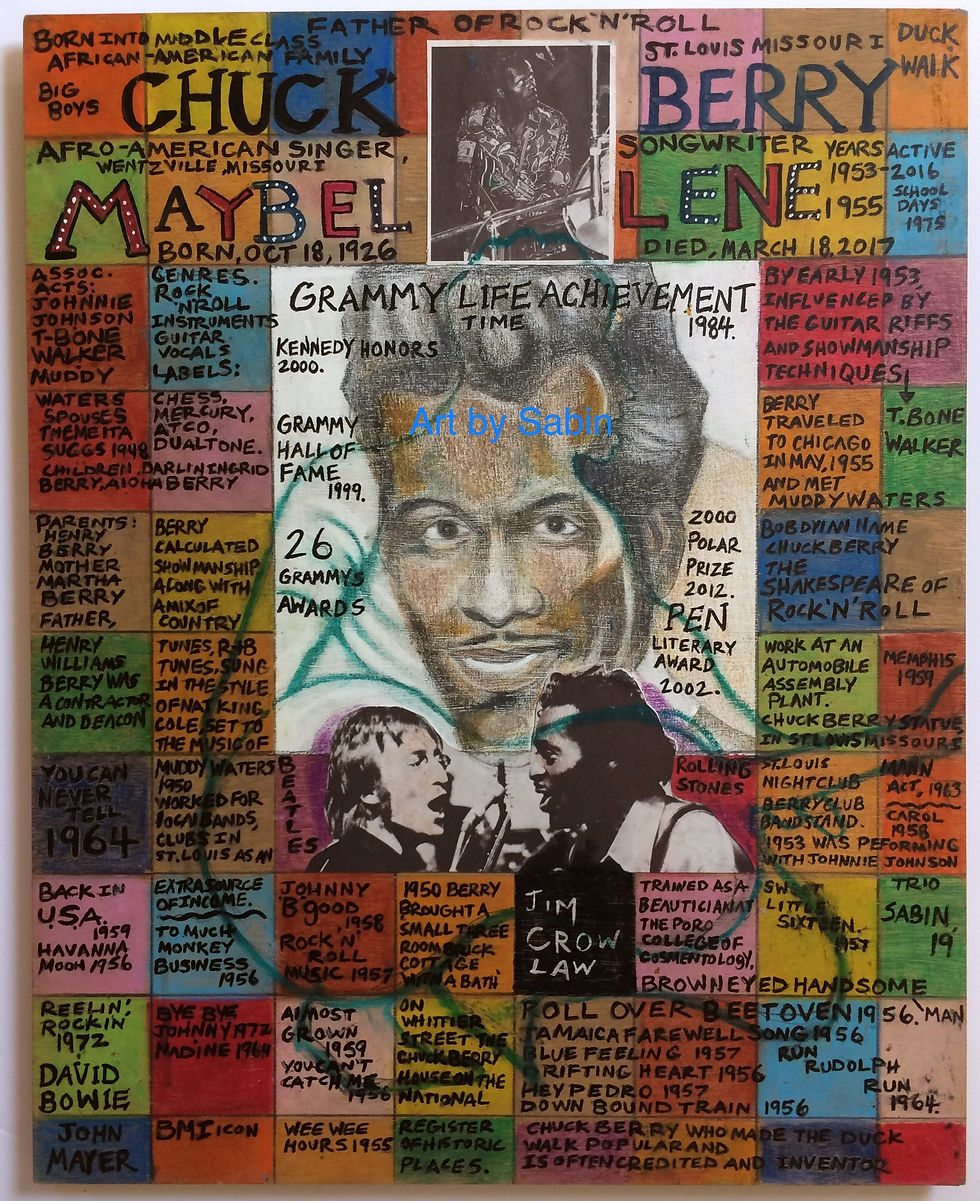 FATHER OF ROCK'N'ROLL
BORN INTO MIDDLE CLASS
AFRICAN-AMERICAN FAMILY
BIG
BOYS
CHUCK
ST. LOUIS MISSOURI
BERRY
DUCK
WALK
AFRO-AMERICAN SINGER,
WENTZVILLE, MISSOURI
SONGWRITER
YEARS ACTIVE
1953-2016
MAYBEL
LENE
1955
SCHOOL
DAYS
1975
BORN, OCT 18, 1926
DIED, MARCH 18, 2017
ASSOC.
ACTS:
JOHNNIE
JOHNSON
T-BONE
WALKER
MUDDY
WATERS
SPOUSES
THEMEITA
SUGGS 1948
CHILDREN, DARLIN INGRID
BERRY, AIOHA BERRY
GENRES.
ROCK
'N'ROLL
INSTRUMENTS
GUITAR
VOCALS
LABELS:
CHESS,
MERCURY,
ATCO,
DUALTONE.
GRAMMY LIFE ACHIEVEMENT
TIME
1984.
KENNEDY HONORS
2000.
GRAMMY
HALL OF
FAME
1999.
26
GRAMMYS
AWARDS
Art by Sabin
2000
POLAR
PRIZE
2012.
PEN
LITERARY
AWARD
2002.
BY EARLY 1953,
INFLUENCED BY
THE GUITAR RIFFS
AND SHOWMANSHIP
TECHNIQUES
T. BONE
WALKER
BERRY
TRAVELED
TO CHICAGO
IN MAY, 1955
AND MET
MUDDY WATERS
PARENTS:
HENRY
BERRY
MOTHER
MARTHA
BERRY
FATHER,
HENRY
WILLIAMS
BERRY WAS
A CONTRACTOR
AND DEACON
BERRY
CALCULATED
SHOWMANSHIP
ALONG WITH
A MIX OF
COUNTRY
TUNES, R&B
TUNES, SUNG
IN THE STYLE
OF NAT KING
COLE, SET TO
THE MUSIC OF
MUDDY WATERS
1950
WORKED FOR
LOCAL BANDS,
CLUBS IN
ST. LOUIS AS AN
EXTRA SOURCE
OF INCOME.
BOB DYIAN NAME
CHUCK BERRY
THE
SHAKESPEARE OF
ROCK'N'ROLL
WORK AT AN
AUTOMOBILE
ASSEMBLY
PLANT.
MEMPHIS
1959
CHUCK BERRY STATUE
IN ST. LOUIS MISSOURI
YOU CAN
NEVER
TELL
1964
BEATLES
ROLLING
STONES
ST. LOUIS
NIGHTCLUB
BERRY CLUB
BANDSTAND.
1953 WAS PEFORMING
WITH JOHNNIE JOHNSON
MANN
ACT, 1963
CAROL
1958
TRIO
SABIN
19
BACK IN
U.S.A.
1959
HAVANNA
MOON 1956
TO MUCH
MONKEY
BUSINESS
1956
JOHNNY
B'GOOD
1958
ROCK N'
ROLL
MUSIC 1957
1950 BERRY
BROUGHT A
SMALL THREE
ROOM BRICK
COTTAGE
WITH A BATH
JIM
CROW
LAW
TRAINED AS A
BEAUTICIAN AT
THE PORO
COLLEGE OF
COSMENTOLOGY,
SWEET
LITTLE
SIXTEEN.
1957
BROWN EYED HANDSOME
MAN
REELIN'
ROCKIN
1972
DAVID
BOWIE
BYE BYE
JOHNNY 1972
NADINE 1964
AlMOST
GROWN
1959
YOU CAN'T
CATCH ME
1956
ON
WHITTIER
STREET THE
CHUCK BERRY
HOUSE ON THE
NATIONAL
REGISTER
OF HISTORIC
PLACES.
ROLL OVER BEETOVEN 1956.
JAMAICA FAREWELL SONG 1956
BLUE FEELING 1957
RIFTING HEART 1956
HEY PEDRO 1957
DOWN BOUND TRAIN 1956
RUN
RUDOLPH
RUN
1964.
JOHN
MAYER
BMI icon
WEE WEE
HOURS 1955
CHUCK BERRY WHO MADE THE DUCK
WALK POPULAR AND
IS OFTEN CREDITED AND INVENTOR